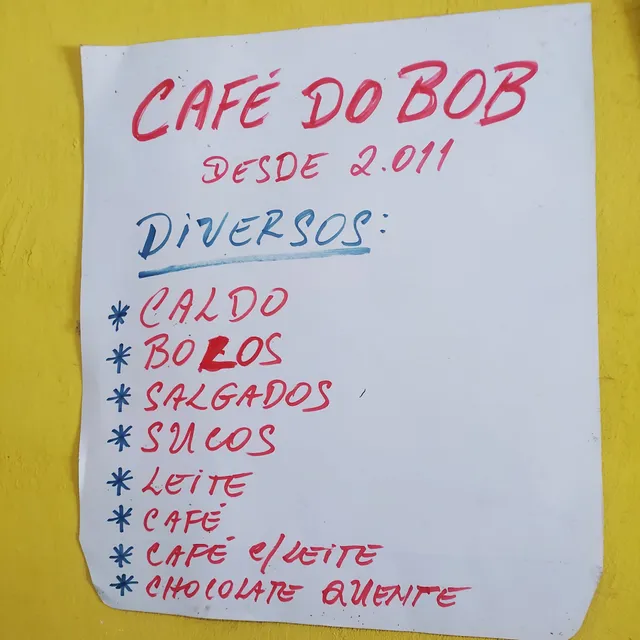 CAFÉ DO BOB
DESDE 2.011
DIVERSOS:
* CALDO
* BOLOS
* SALGADOS
* SUCOS
* LEITE
* CAFÉ
* CAFÉ C/LEITE
* CHOCOLATE QUENTE